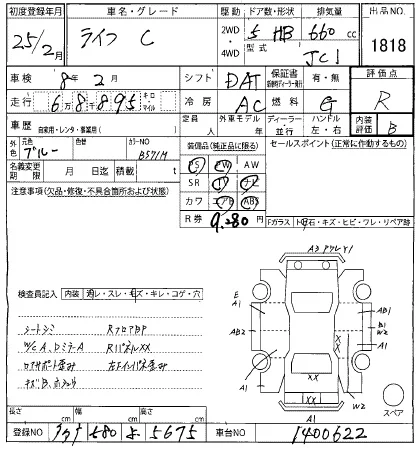 初度登録年月 車名・グレード 駆動 ドア数・形状 排気量 出品NO.
25/2月 ライフ C 2WD・4WD 5 HB 660 cc 1818
型式 JC1
車検 8年2月 シフト DAT 保証書 有・無 評価点
走行 6万8千895 キロ・マイル 冷房 AC 燃料 G R
車歴 自家用・レンタ・事業用( ) 定員 人 外車モデル 年 ディーラー・並行 ハンドル 左・右 内装評価 B
外色 元色 ブルー 色替 カラーNO B571M 装備品(純正品に限る) セールスポイント(正常に作動するもの)
名義変更期限 月 日 迄 積載 t PS PW AW
注意事項(欠品・修復・不具合箇所および状態) SR
カワ エアB ABS
R券 9,280円 Fガラス トビ石・キズ・ヒビ・ワレ・リペア跡
A3 アリ Y1
検査員記入 内装 汚レ・スレ・キズ・キレ・コゲ・穴
E A1 A1 AB1
シートシミ RフロアBP AB2 B1 W2
W/C A、DミラーA RパネルXX XX A1
ロアサポート歪み 左Fインパネ歪み A1
XX W2
XX スペア
A1
長さ cm 幅 cm 高さ cm
登録NO 580 5675 車台NO 1400622